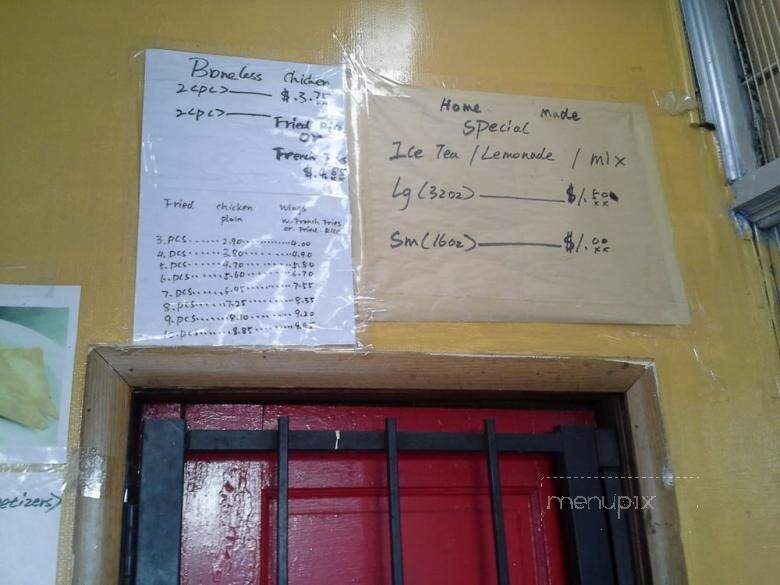 Boneless Chicken
2<pc>—— $.3.75
2<pc>——
Fried Rice
or
French Fries
Fried chicken Wings
plain w. French Fries
or. Fried. Rice
3. pcs...... 2.90 ......... 4.00
4. pcs...... 3.80 ......... 4.90
5. pcs...... 4.70 ...... 5.80
6. pcs...... 5.60 ...... 6.70
7. pcs...... 6.45 ...... 7.55
8. pcs...... 7.25 ...... 8.35
9. pcs...... 8.10 ...... 9.20
pcs...... 8.85
Home made
Special
Ice Tea / Lemonade / mix
Lg (32oz) —— $1.50
xx
Sm (16oz) —— $1.00
xx
etizers>
menupix